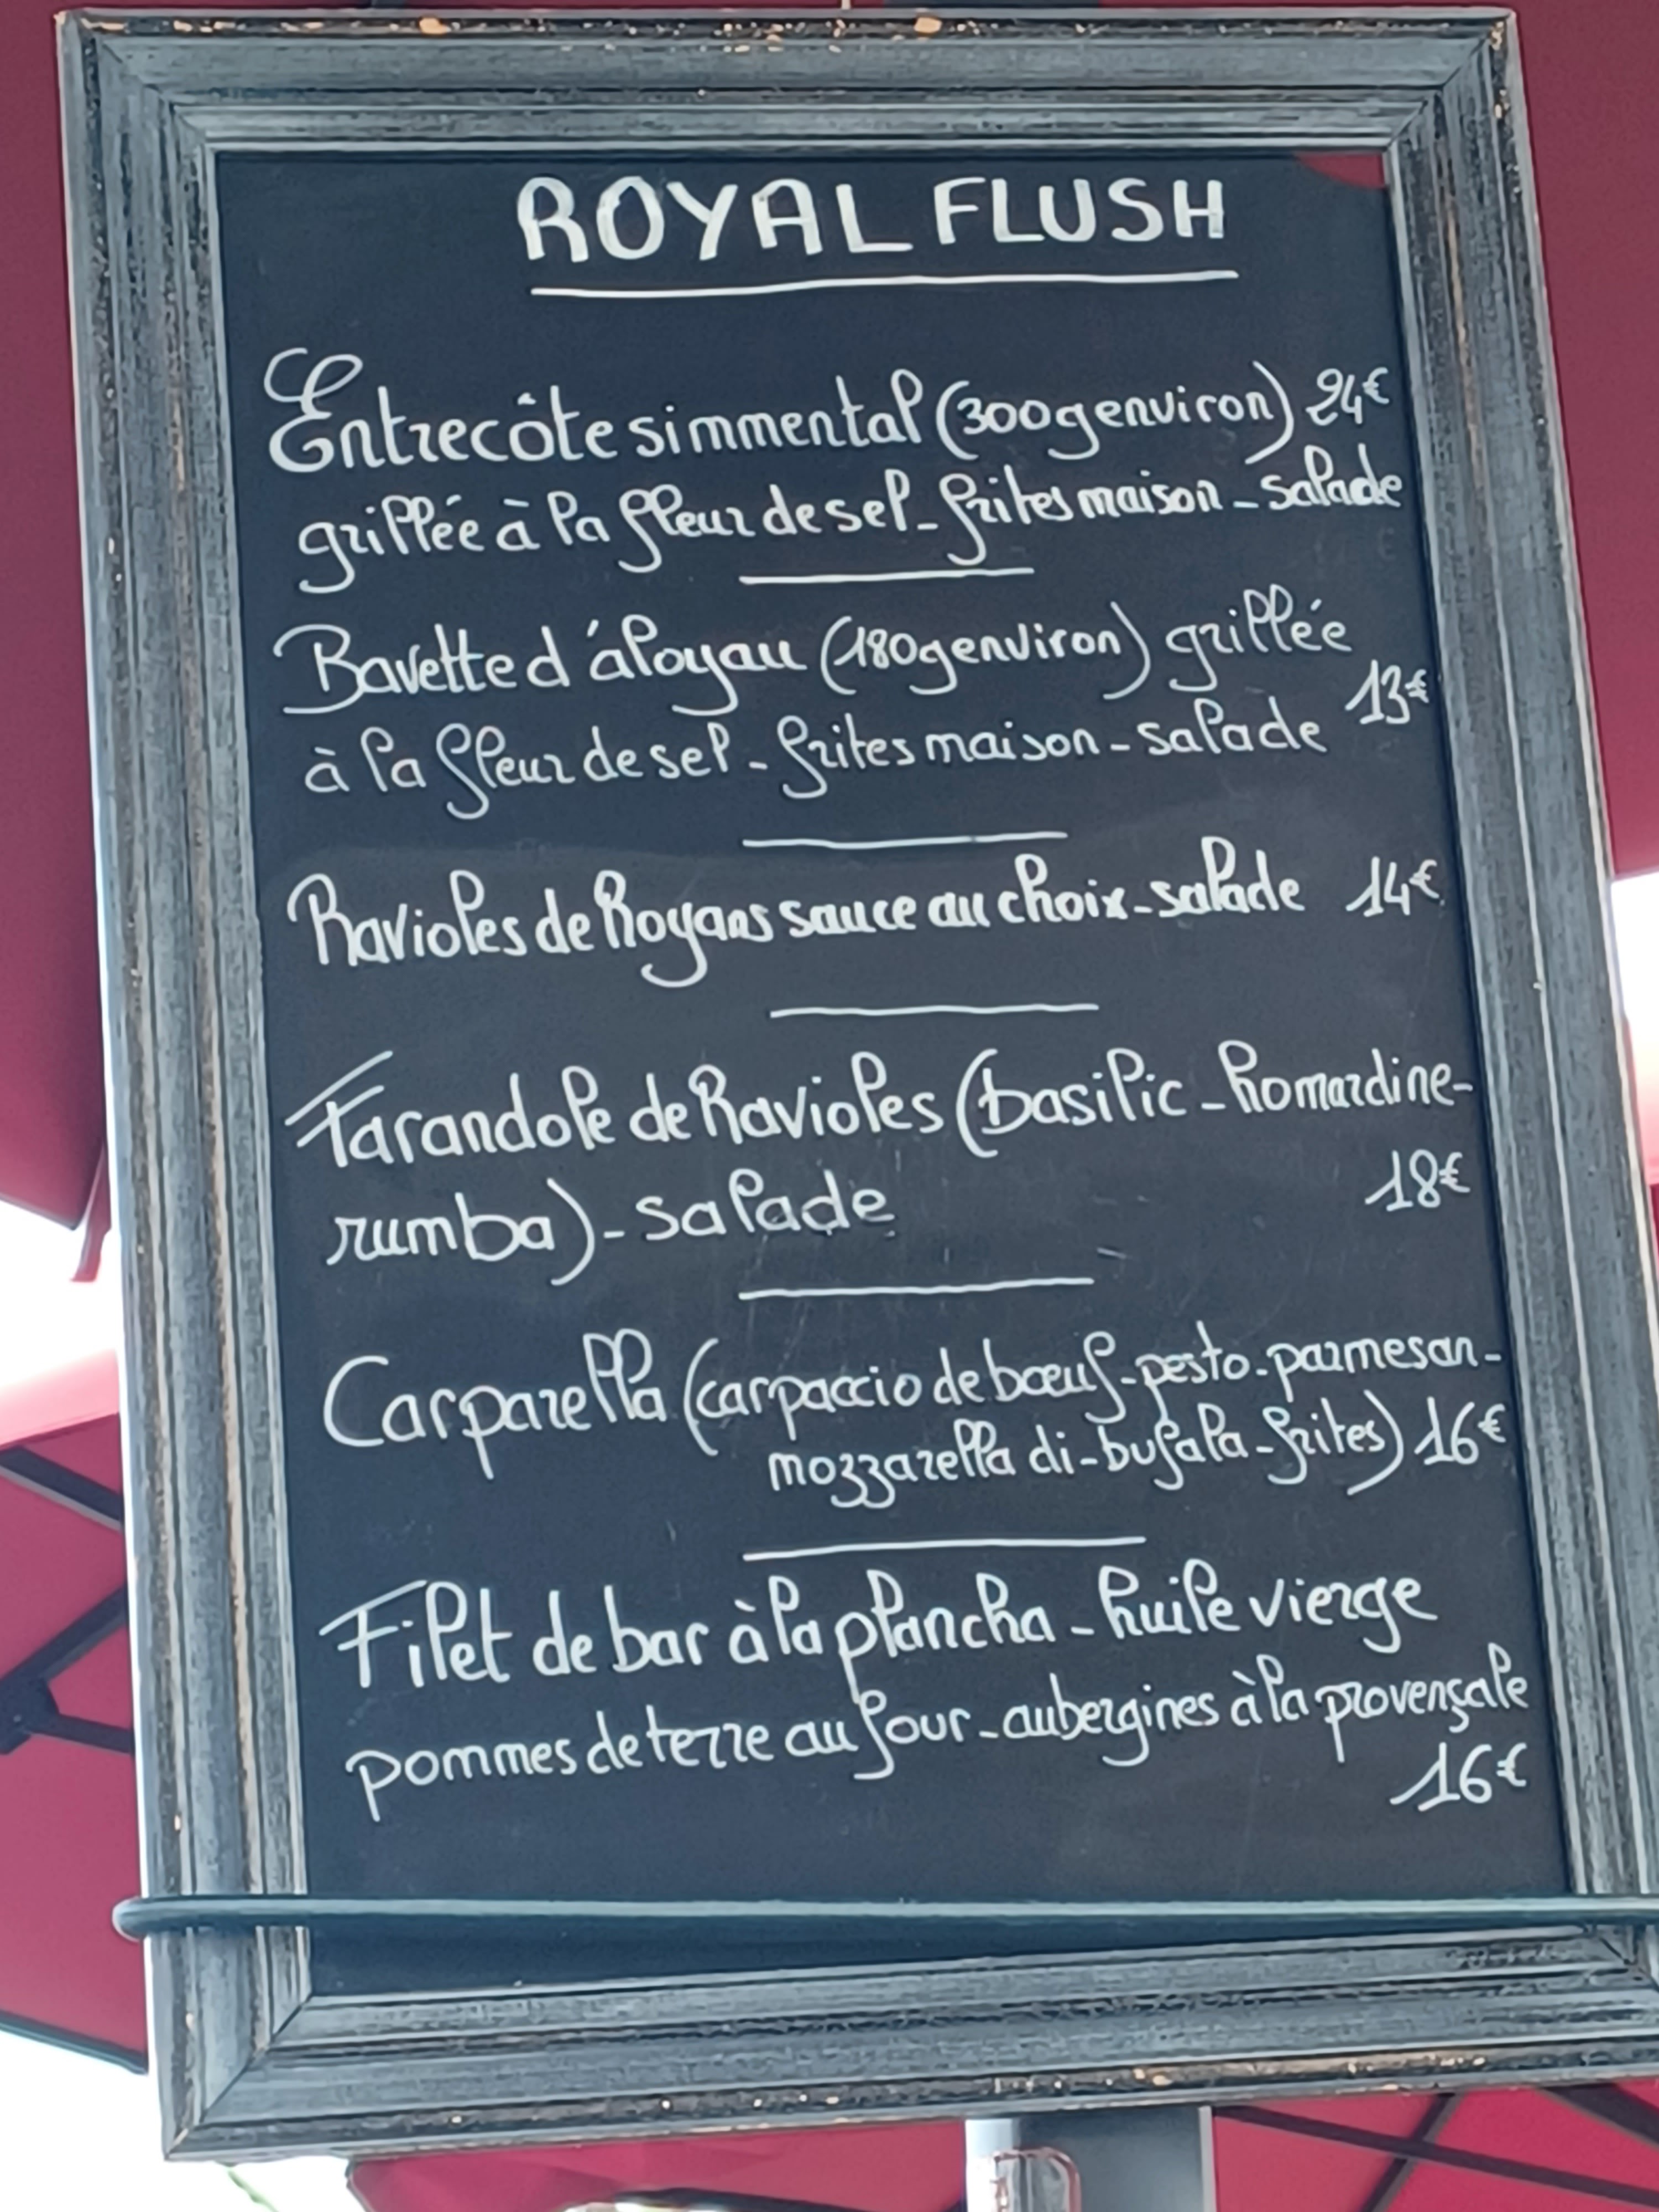 ROYAL FLUSH
Entrecôte simmental (300g environ) 24€
grillée à la fleur de sel - frites maison - salade
Bavette d'áloyau (180g environ) grillée
13€
à la fleur de sel - frites maison - salade
Ravioles de Royans sauce au choix - salade 14€
Farandole de Ravioles (basilic - Romardine -
rumba) - salade 18€
Carparella (carpaccio de bœuf - pesto - parmesan -
mozzarella di-bufala - frites) 16€
Filet de bar à la plancha - huile vierge
pommes de terre au four - aubergines à la provençale
16€